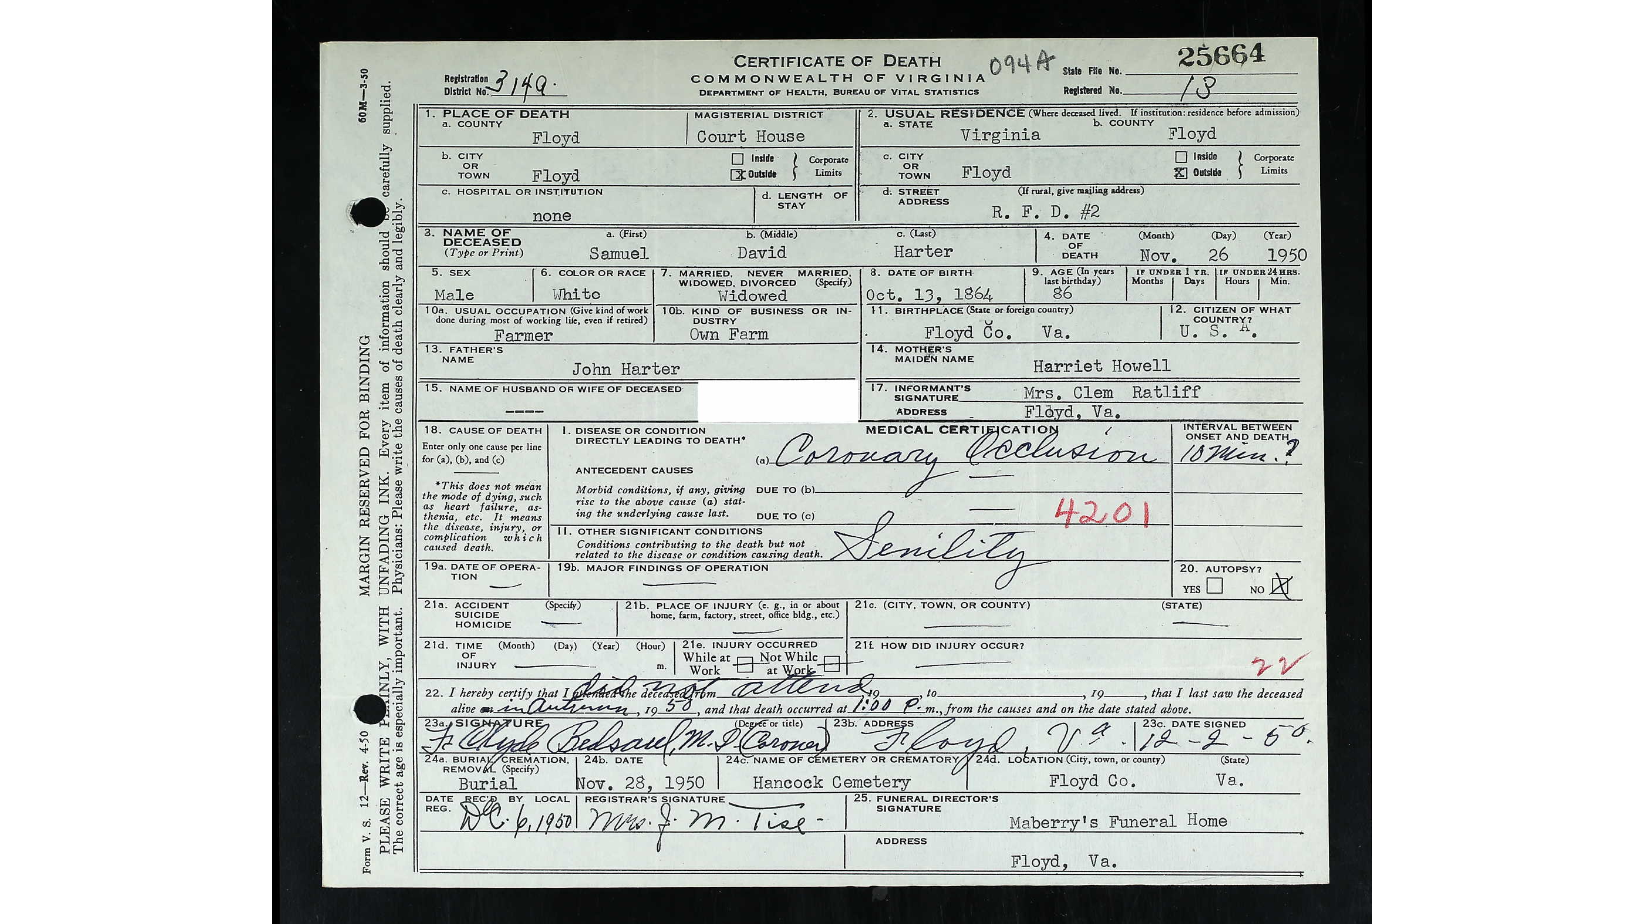 CERTIFICATE OF DEATH
COMMONWEALTH OF VIRGINIA
DEPARTMENT OF HEALTH, BUREAU OF VITAL STATISTICS
094A
25664
State File No.
Registered No. 13
Registration District No. 314a.
60M—3-50
Form V. S. 12—Rev. 4-50
MARGIN RESERVED FOR BINDING
PLEASE WRITE PLAINLY, WITH UNFADING INK. Every item of information should be carefully supplied.
The correct age is especially important. Physicians: Please write the causes of death clearly and legibly.
1. PLACE OF DEATH
a. COUNTY
Floyd
MAGISTERIAL DISTRICT
Court House
2. USUAL RESIDENCE (Where deceased lived. If institution: residence before admission)
a. STATE
Virginia
b. COUNTY
Floyd
b. CITY OR TOWN
Floyd
Inside
Outside
Corporate Limits
c. CITY OR TOWN
Floyd
Inside
Outside
Corporate Limits
c. HOSPITAL OR INSTITUTION
none
d. LENGTH OF STAY
d. STREET ADDRESS
(If rural, give mailing address)
R. F. D. #2
3. NAME OF DECEASED
(Type or Print)
a. (First)
Samuel
b. (Middle)
David
c. (Last)
Harter
4. DATE OF DEATH
(Month) (Day) (Year)
Nov. 26 1950
5. SEX
Male
6. COLOR OR RACE
White
7. MARRIED, NEVER MARRIED, WIDOWED, DIVORCED (Specify)
Widowed
8. DATE OF BIRTH
Oct. 13, 1864
9. AGE (In years last birthday)
86
IF UNDER 1 YR.
Months Days
IF UNDER 24 HRS.
Hours Min.
10a. USUAL OCCUPATION (Give kind of work done during most of working life, even if retired)
Farmer
10b. KIND OF BUSINESS OR INDUSTRY
Own Farm
11. BIRTHPLACE (State or foreign country)
Floyd Co. Va.
12. CITIZEN OF WHAT COUNTRY?
U. S. A.
13. FATHER'S NAME
John Harter
14. MOTHER'S MAIDEN NAME
Harriet Howell
15. NAME OF HUSBAND OR WIFE OF DECEASED
----
17. INFORMANT'S SIGNATURE
Mrs. Clem Ratliff
ADDRESS
Floyd, Va.
18. CAUSE OF DEATH
Enter only one cause per line for (a), (b), and (c)
*This does not mean the mode of dying, such as heart failure, asthenia, etc. It means the disease, injury, or complication which caused death.
MEDICAL CERTIFICATION
I. DISEASE OR CONDITION DIRECTLY LEADING TO DEATH*
(a) Coronary Occlusion
INTERVAL BETWEEN ONSET AND DEATH
10 Min. ?
ANTECEDENT CAUSES
Morbid conditions, if any, giving rise to the above cause (a) stating the underlying cause last.
DUE TO (b)
DUE TO (c)
4201
II. OTHER SIGNIFICANT CONDITIONS
Conditions contributing to the death but not related to the disease or condition causing death.
Senility
19a. DATE OF OPERATION
19b. MAJOR FINDINGS OF OPERATION
20. AUTOPSY?
YES NO
21a. ACCIDENT SUICIDE HOMICIDE (Specify)
21b. PLACE OF INJURY (e. g., in or about home, farm, factory, street, office bldg., etc.)
21c. (CITY, TOWN, OR COUNTY) (STATE)
21d. TIME OF INJURY (Month) (Day) (Year) (Hour) m.
21e. INJURY OCCURRED
While at Work Not While at Work
21f. HOW DID INJURY OCCUR?
22
22. I hereby certify that I attended the deceased from did not attend, 19 , to , 19 , that I last saw the deceased
alive in Autumn, 1950, and that death occurred at 1:00 P. m., from the causes and on the date stated above.
23a. SIGNATURE (Degree or title)
F. Clyde Bedsaul, M.D. (Coroner)
23b. ADDRESS
Floyd, Va.
23c. DATE SIGNED
12-2-50.
24a. BURIAL, CREMATION, REMOVAL (Specify)
Burial
24b. DATE
Nov. 28, 1950
24c. NAME OF CEMETERY OR CREMATORY
Hancock Cemetery
24d. LOCATION (City, town, or county) (State)
Floyd Co. Va.
DATE REC'D BY LOCAL REG.
Dec. 6, 1950
REGISTRAR'S SIGNATURE
Mrs. J. M. Tise
25. FUNERAL DIRECTOR'S SIGNATURE
Maberry's Funeral Home
ADDRESS
Floyd, Va.